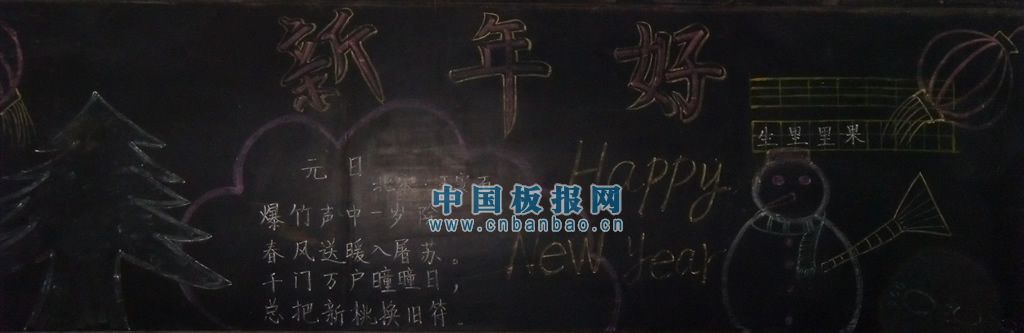 新年好
元日
爆竹声中一岁
春风送暖入屠苏。
千门万户瞳瞳日,
总把新桃换旧符
Happy
New Year
坐里里果
中国板报网
www.cnbanbao.cn